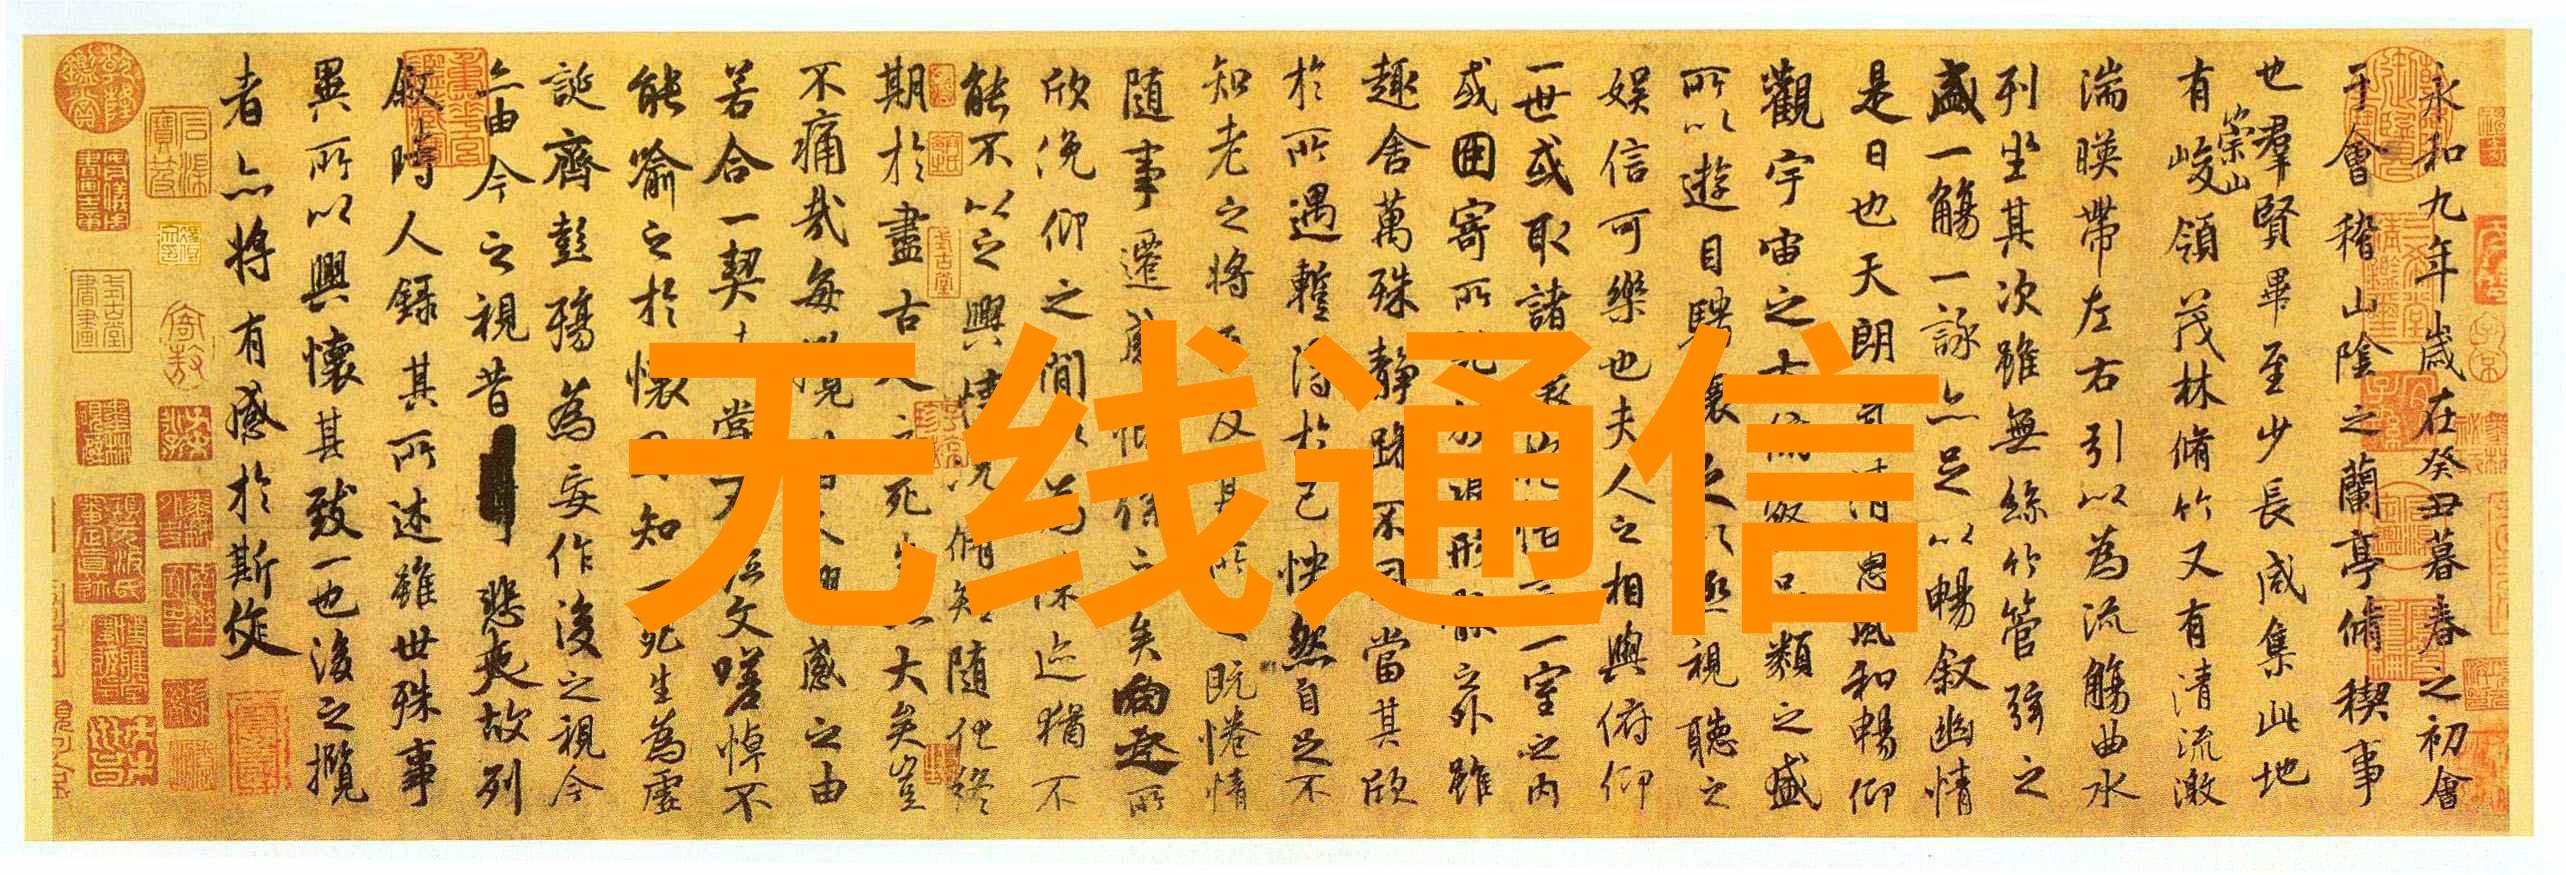 永和九年歲在癸丑暮春之初會
于會稽山陰之蘭亭脩稧事
也羣賢畢至少長咸集此地
有崇山峻領茂林脩竹又有清流激
湍暎帶左右引以為流觴曲水
列坐其次雖無絲竹管弦之
盛一觴一詠亦足以暢叙幽情
是日也天朗氣清惠風和暢仰
觀宇宙之大俯察品類之盛
所以遊目騁懷足以極視聽之
娛信可樂也夫人之相與俯仰
一世或取諸懷抱悟言一室之內
或因寄所託放浪形骸之外雖
趣舍萬殊靜躁不同當其欣
於所遇暫得於己怏然自足不
知老之將至及其所之既惓情
隨事遷感慨係之矣向之所
欣俛仰之間以為陳迹猶不
能不以之興懷況脩短隨化終
期於盡古人云死生亦大矣豈
不痛哉每攬昔人興感之由
若合一契未嘗不臨文嗟悼不
能喻之於懷固知一死生為虛
誕齊彭殤為妄作後之視今
亦由今之視昔悲夫故列
叙時人錄其所述雖世殊事
異所以興懷其致一也後之攬
者亦將有感於斯文
无线通信